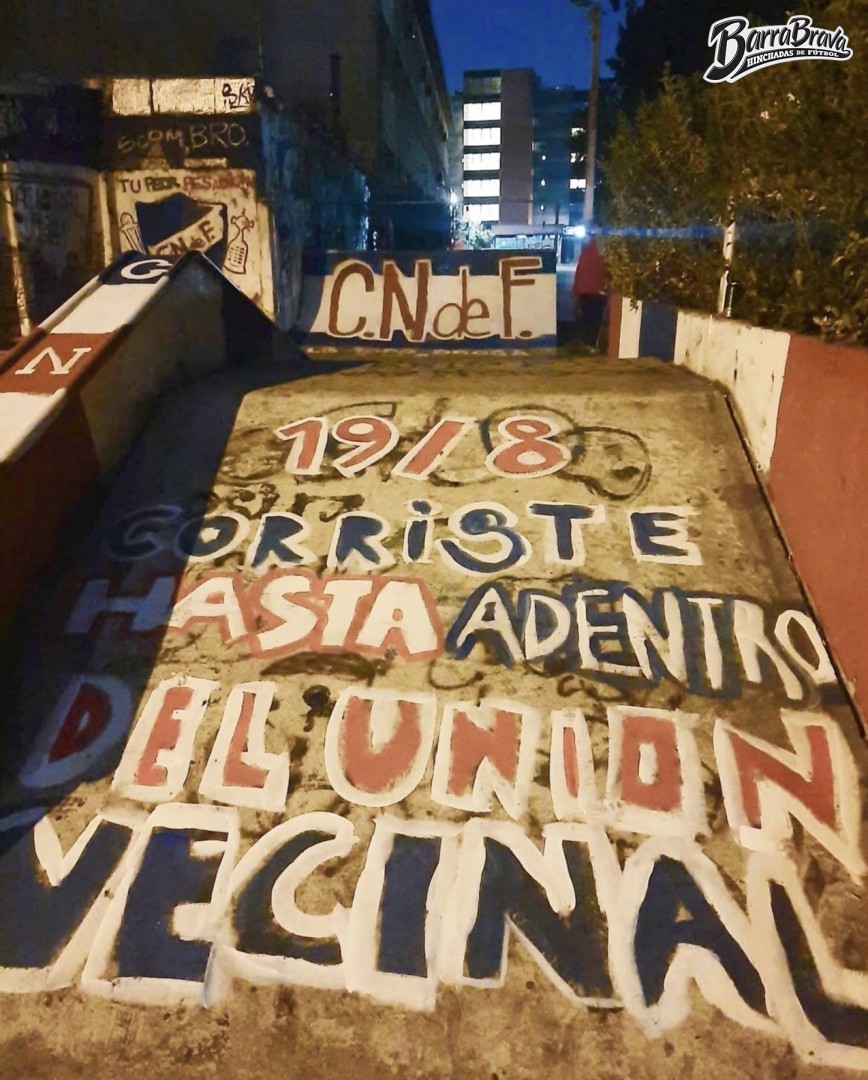 BarraBrava
HINCHADAS DE FÚTBOL
BRO.
TU PEOR PESADILLA
C.N.deF.
C
N
C.N.de F.
19/8
CORRISTE
HASTA ADENTRO
DEL UNION
VECINAL